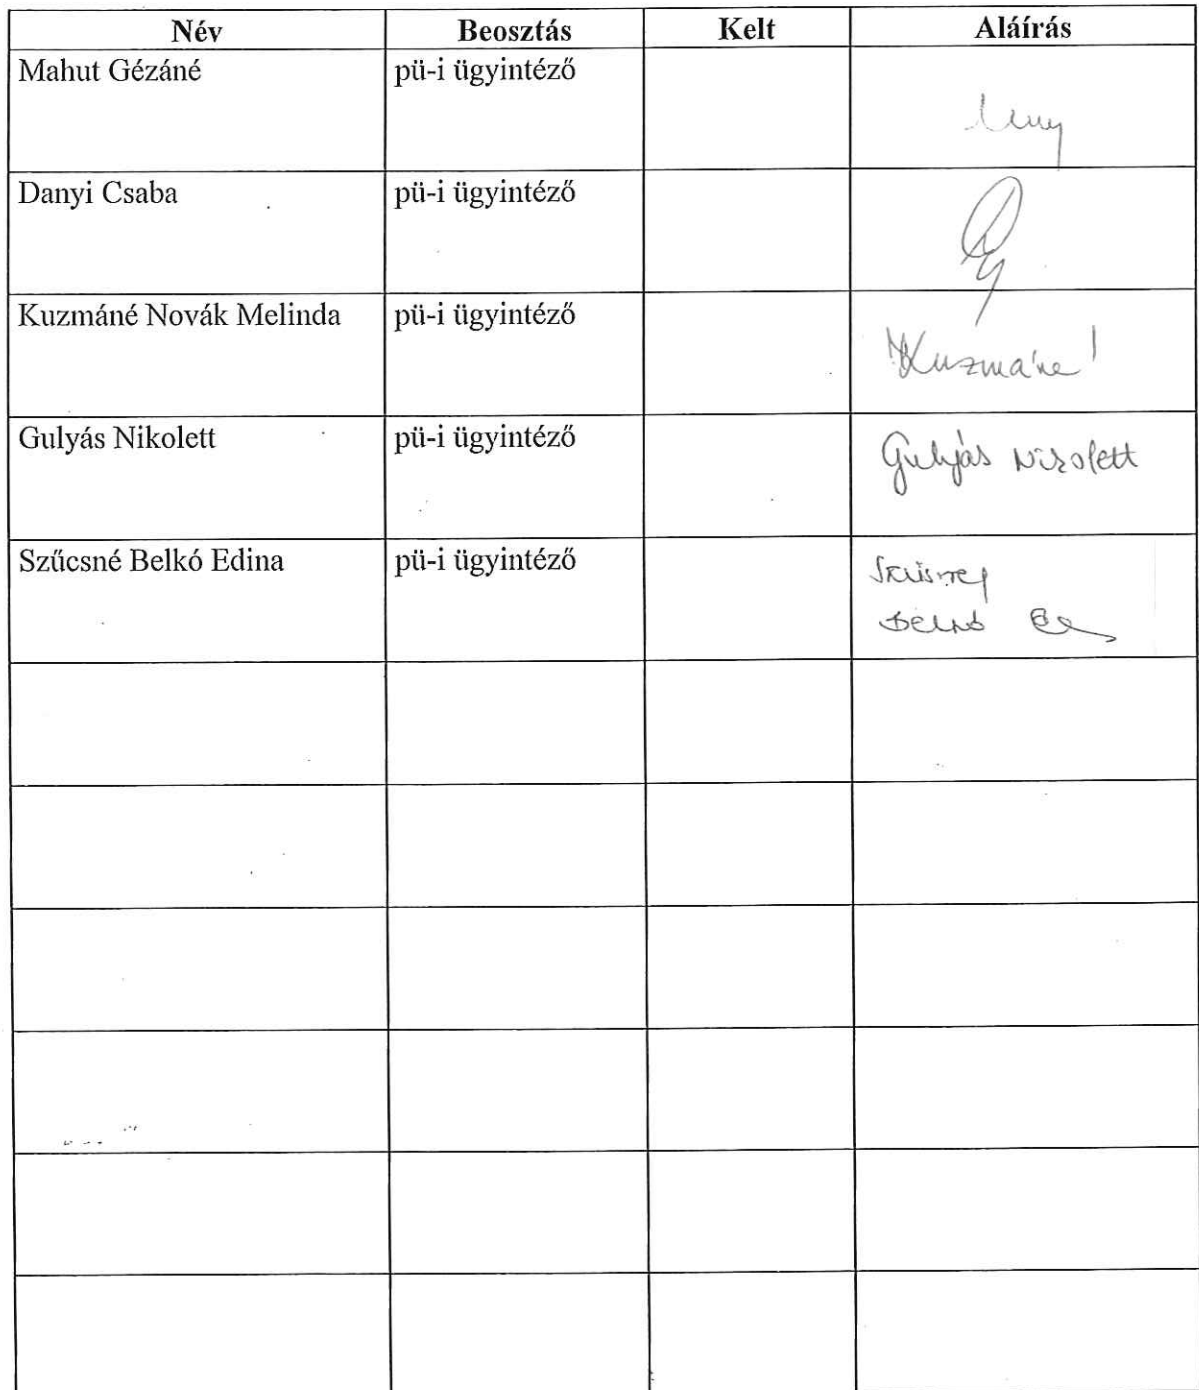 Név Beosztás Kelt Aláírás
Mahut Gézáné pü-i ügyintéző
Danyi Csaba pü-i ügyintéző
Kuzmáné Novák Melinda pü-i ügyintéző Kuzmáné
Gulyás Nikolett pü-i ügyintéző Gulyás Nikolett
Szűcsné Belkó Edina pü-i ügyintéző Szűcsné
Belkó